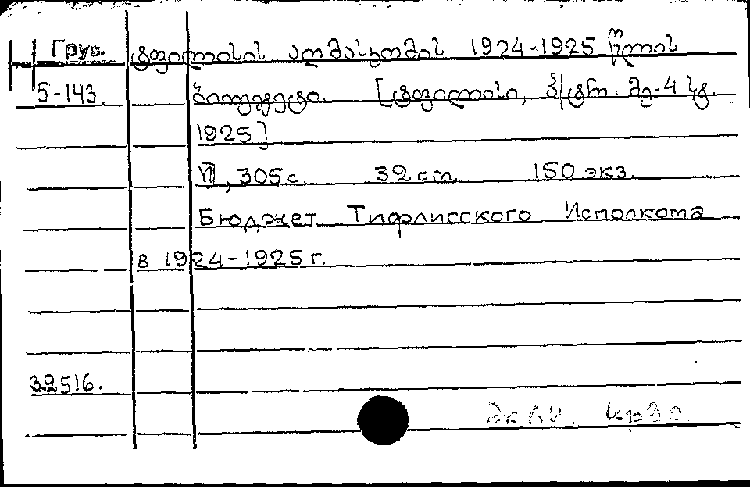 Груз. ტფილისის აღმასკომის 1924-1925 წლის
5-143. ბიუჯეტი. [ტფილისი, პ/ტრ. მე-4 სტ.
1925]
VII, 305 с. 32 см. 150 экз.
Бюджет Тифлисского Исполкома
в 1924-1925 г.
32516.